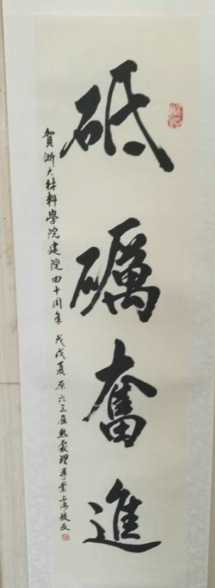 砥礪奮進
賀浙大材料學院建院四十周年 戊戌夏 原六三屆熱處理畢業上海校友